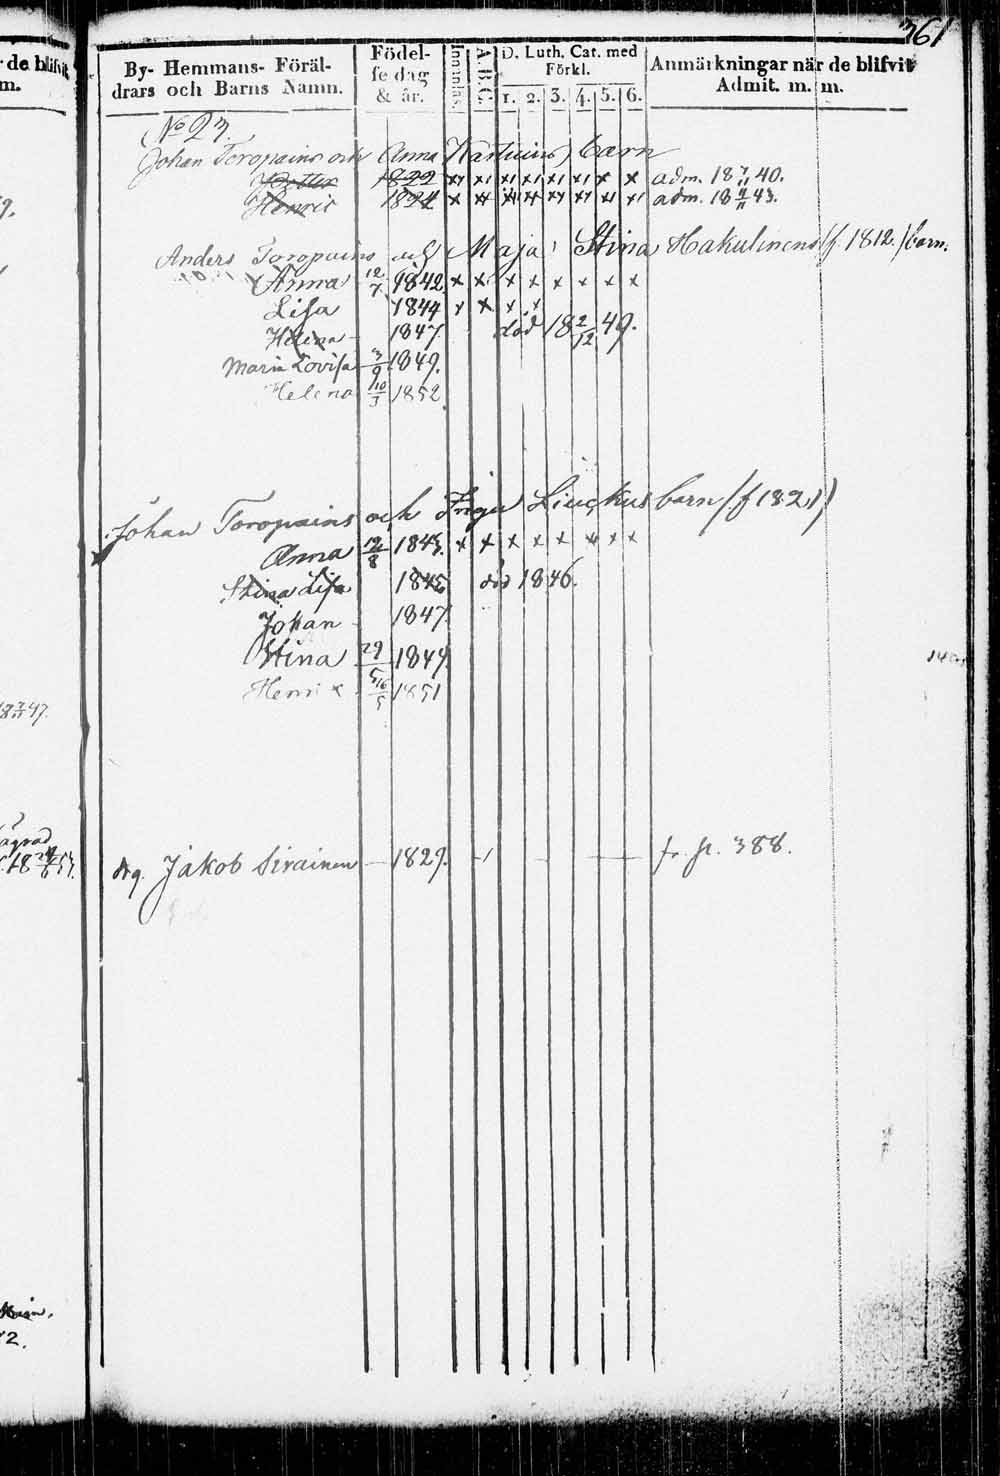 361
By- Hemmans- Föräl-
drars och Barns Namn.
Födel-
se dag
& år.
Innanläs.
A.B.C.
D. Luth. Cat. med
Förkl.
1. 2. 3. 4. 5. 6.
Anmärkningar när de blifvit
Admit. m. m.
No 23.
Johan Toropains och Anna barn
Petter 1822 adm. 18 7/11 40.
Henric 1824 adm. 18 43.
Anders Toropains och Maja Stina Hakulinens (f. 1812.) barn.
Anna 12/7 1842. x x x x x x x x
Lisa 1844 x x x x x
Helena 1847 död 18 2/12 49.
Maria Lovisa 3/9 1849.
Helena 10/3 1852
Johan Toropains och Inger barn (f 1821)
Anna 12/8 1843. x x x x x x x x
Stina Lisa 1845 död 1846.
Johan 1847
Stina 29/5 1849
Henrik 16/5 1851
drg. Jakob Sirainen 1829. fr. p. 388.